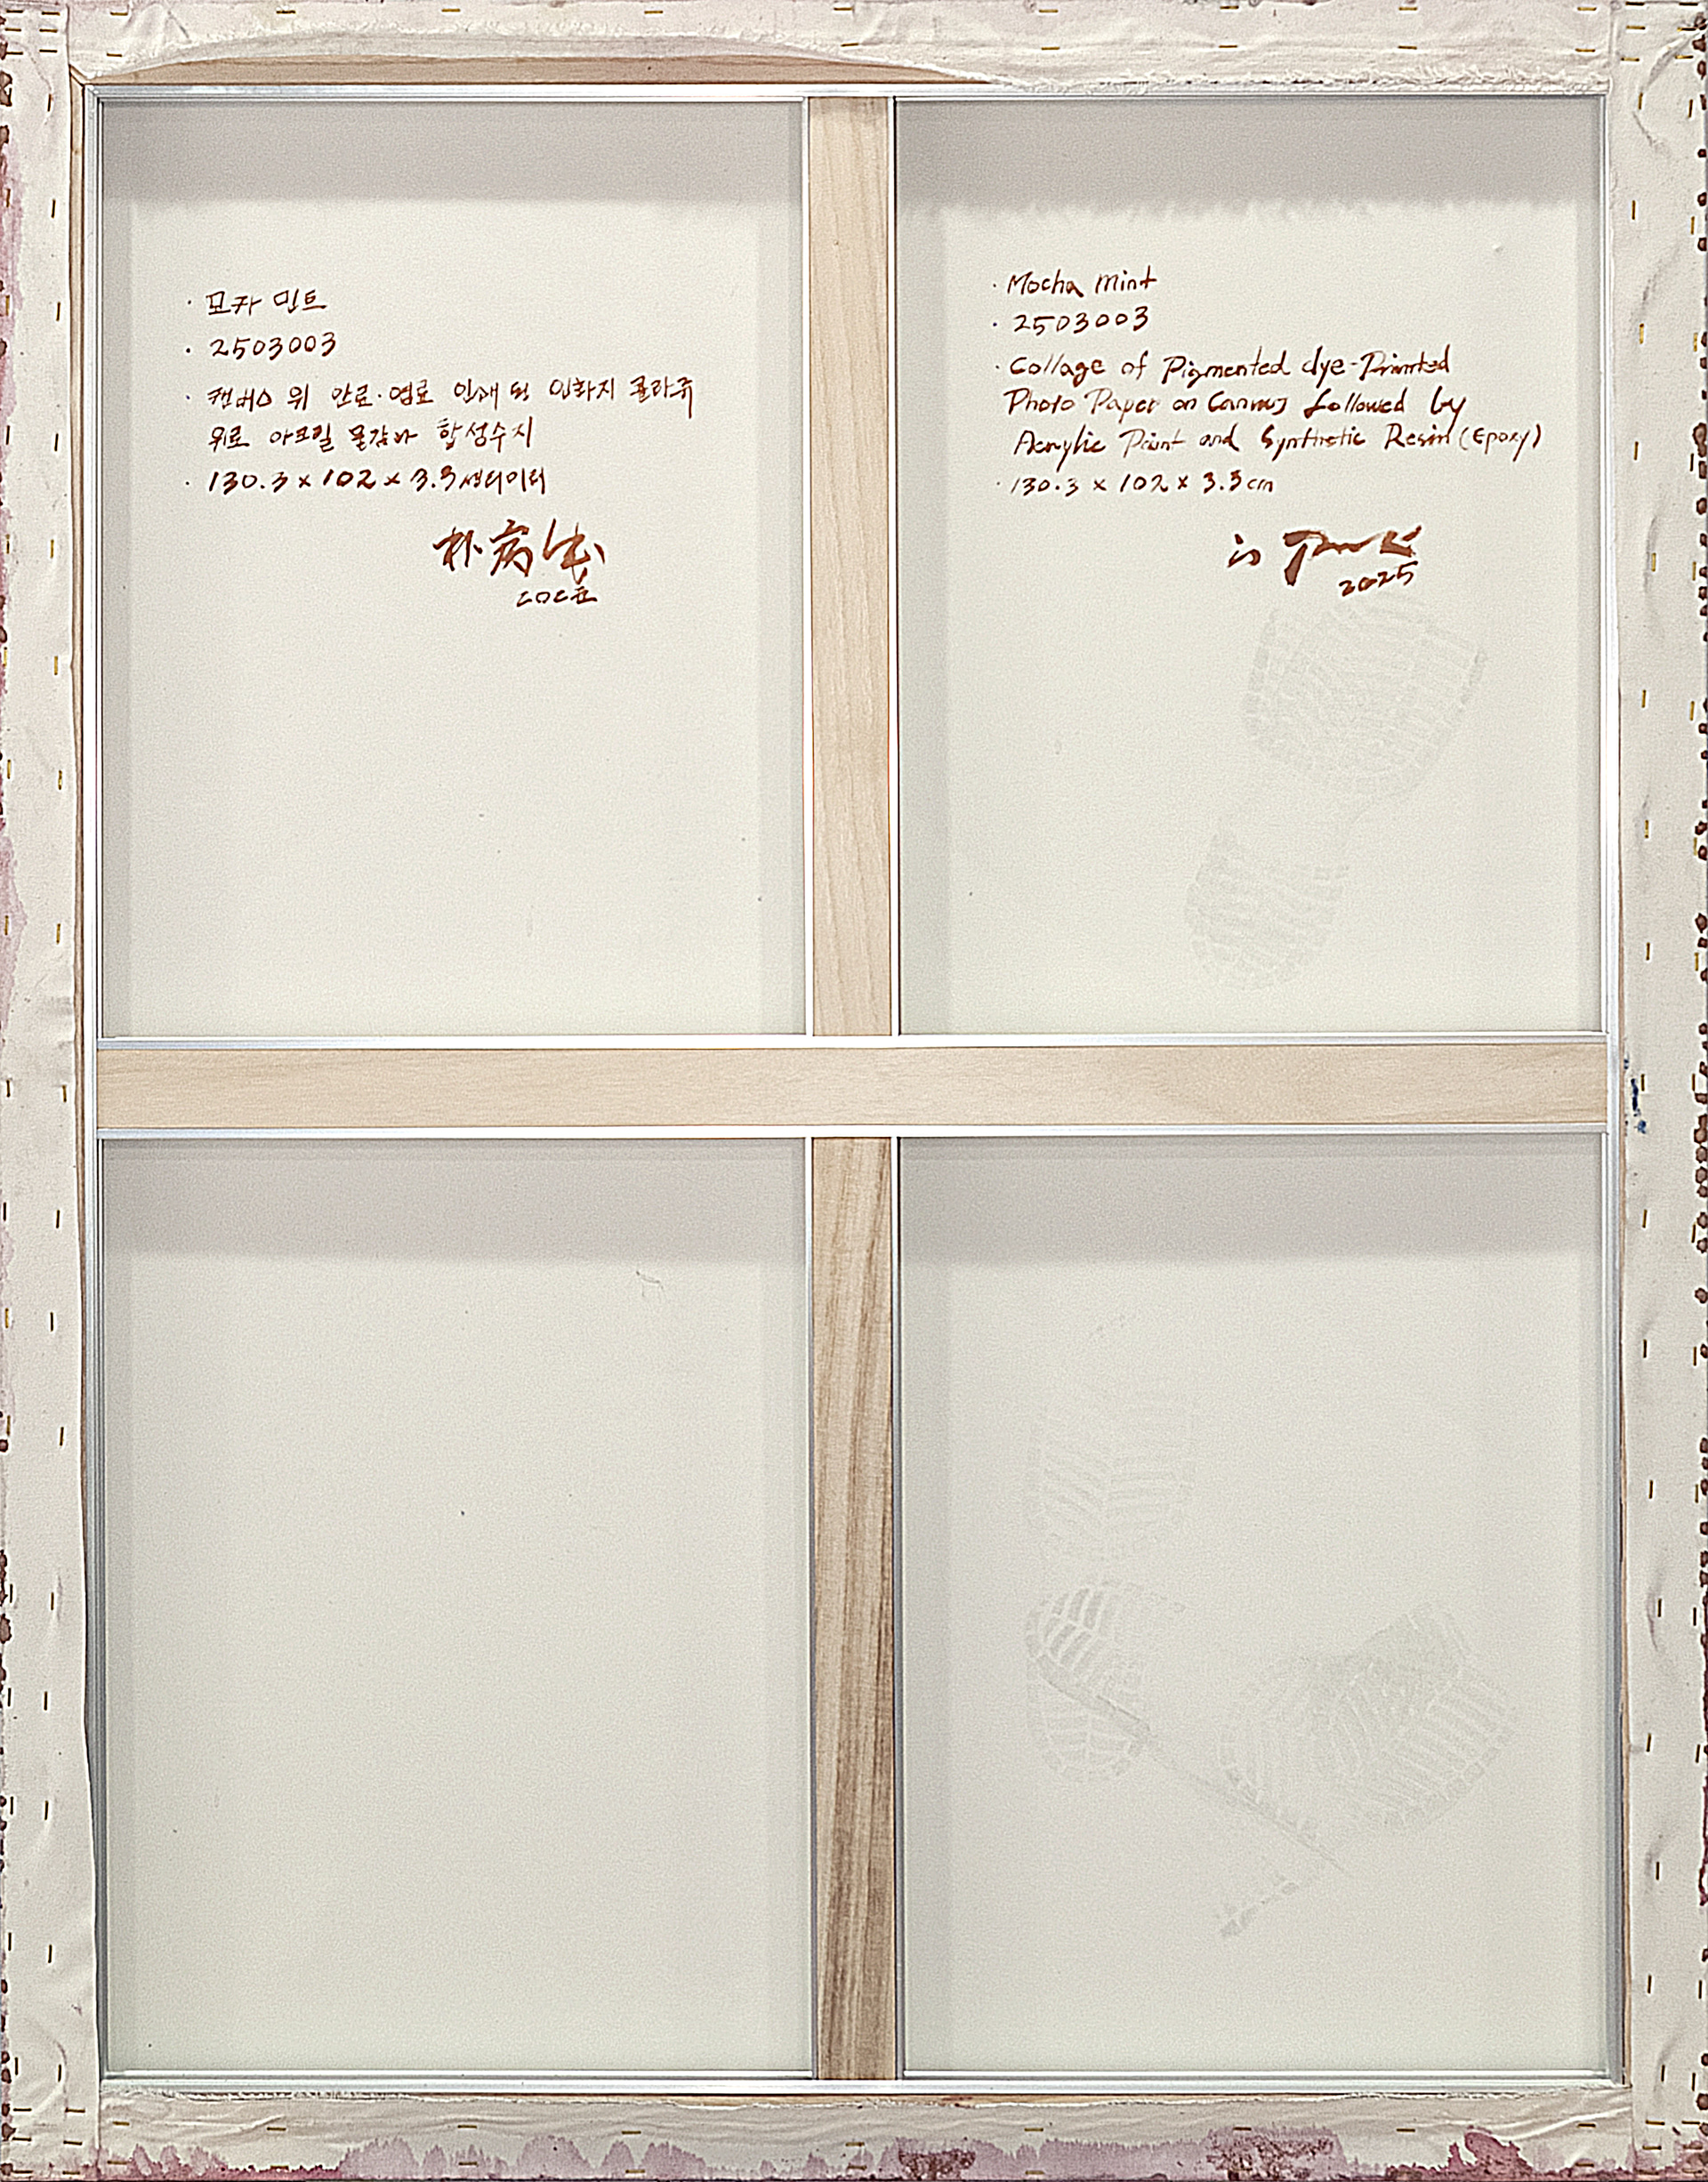 · 모카 민트
· 2503003
· 캔버스 위 안료·염료 인쇄 된 인화지 콜라쥬
위로 아크릴 물감과 합성수지
· 130.3 x 102 x 3.5 센티미터
朴
· Mocha Mint
· 2503003
· Collage of Pigmented dye-Printed
Photo Paper on Canvas followed by
Acrylic Paint and Synthetic Resin (Epoxy)
· 130.3 x 102 x 3.5 cm
2025